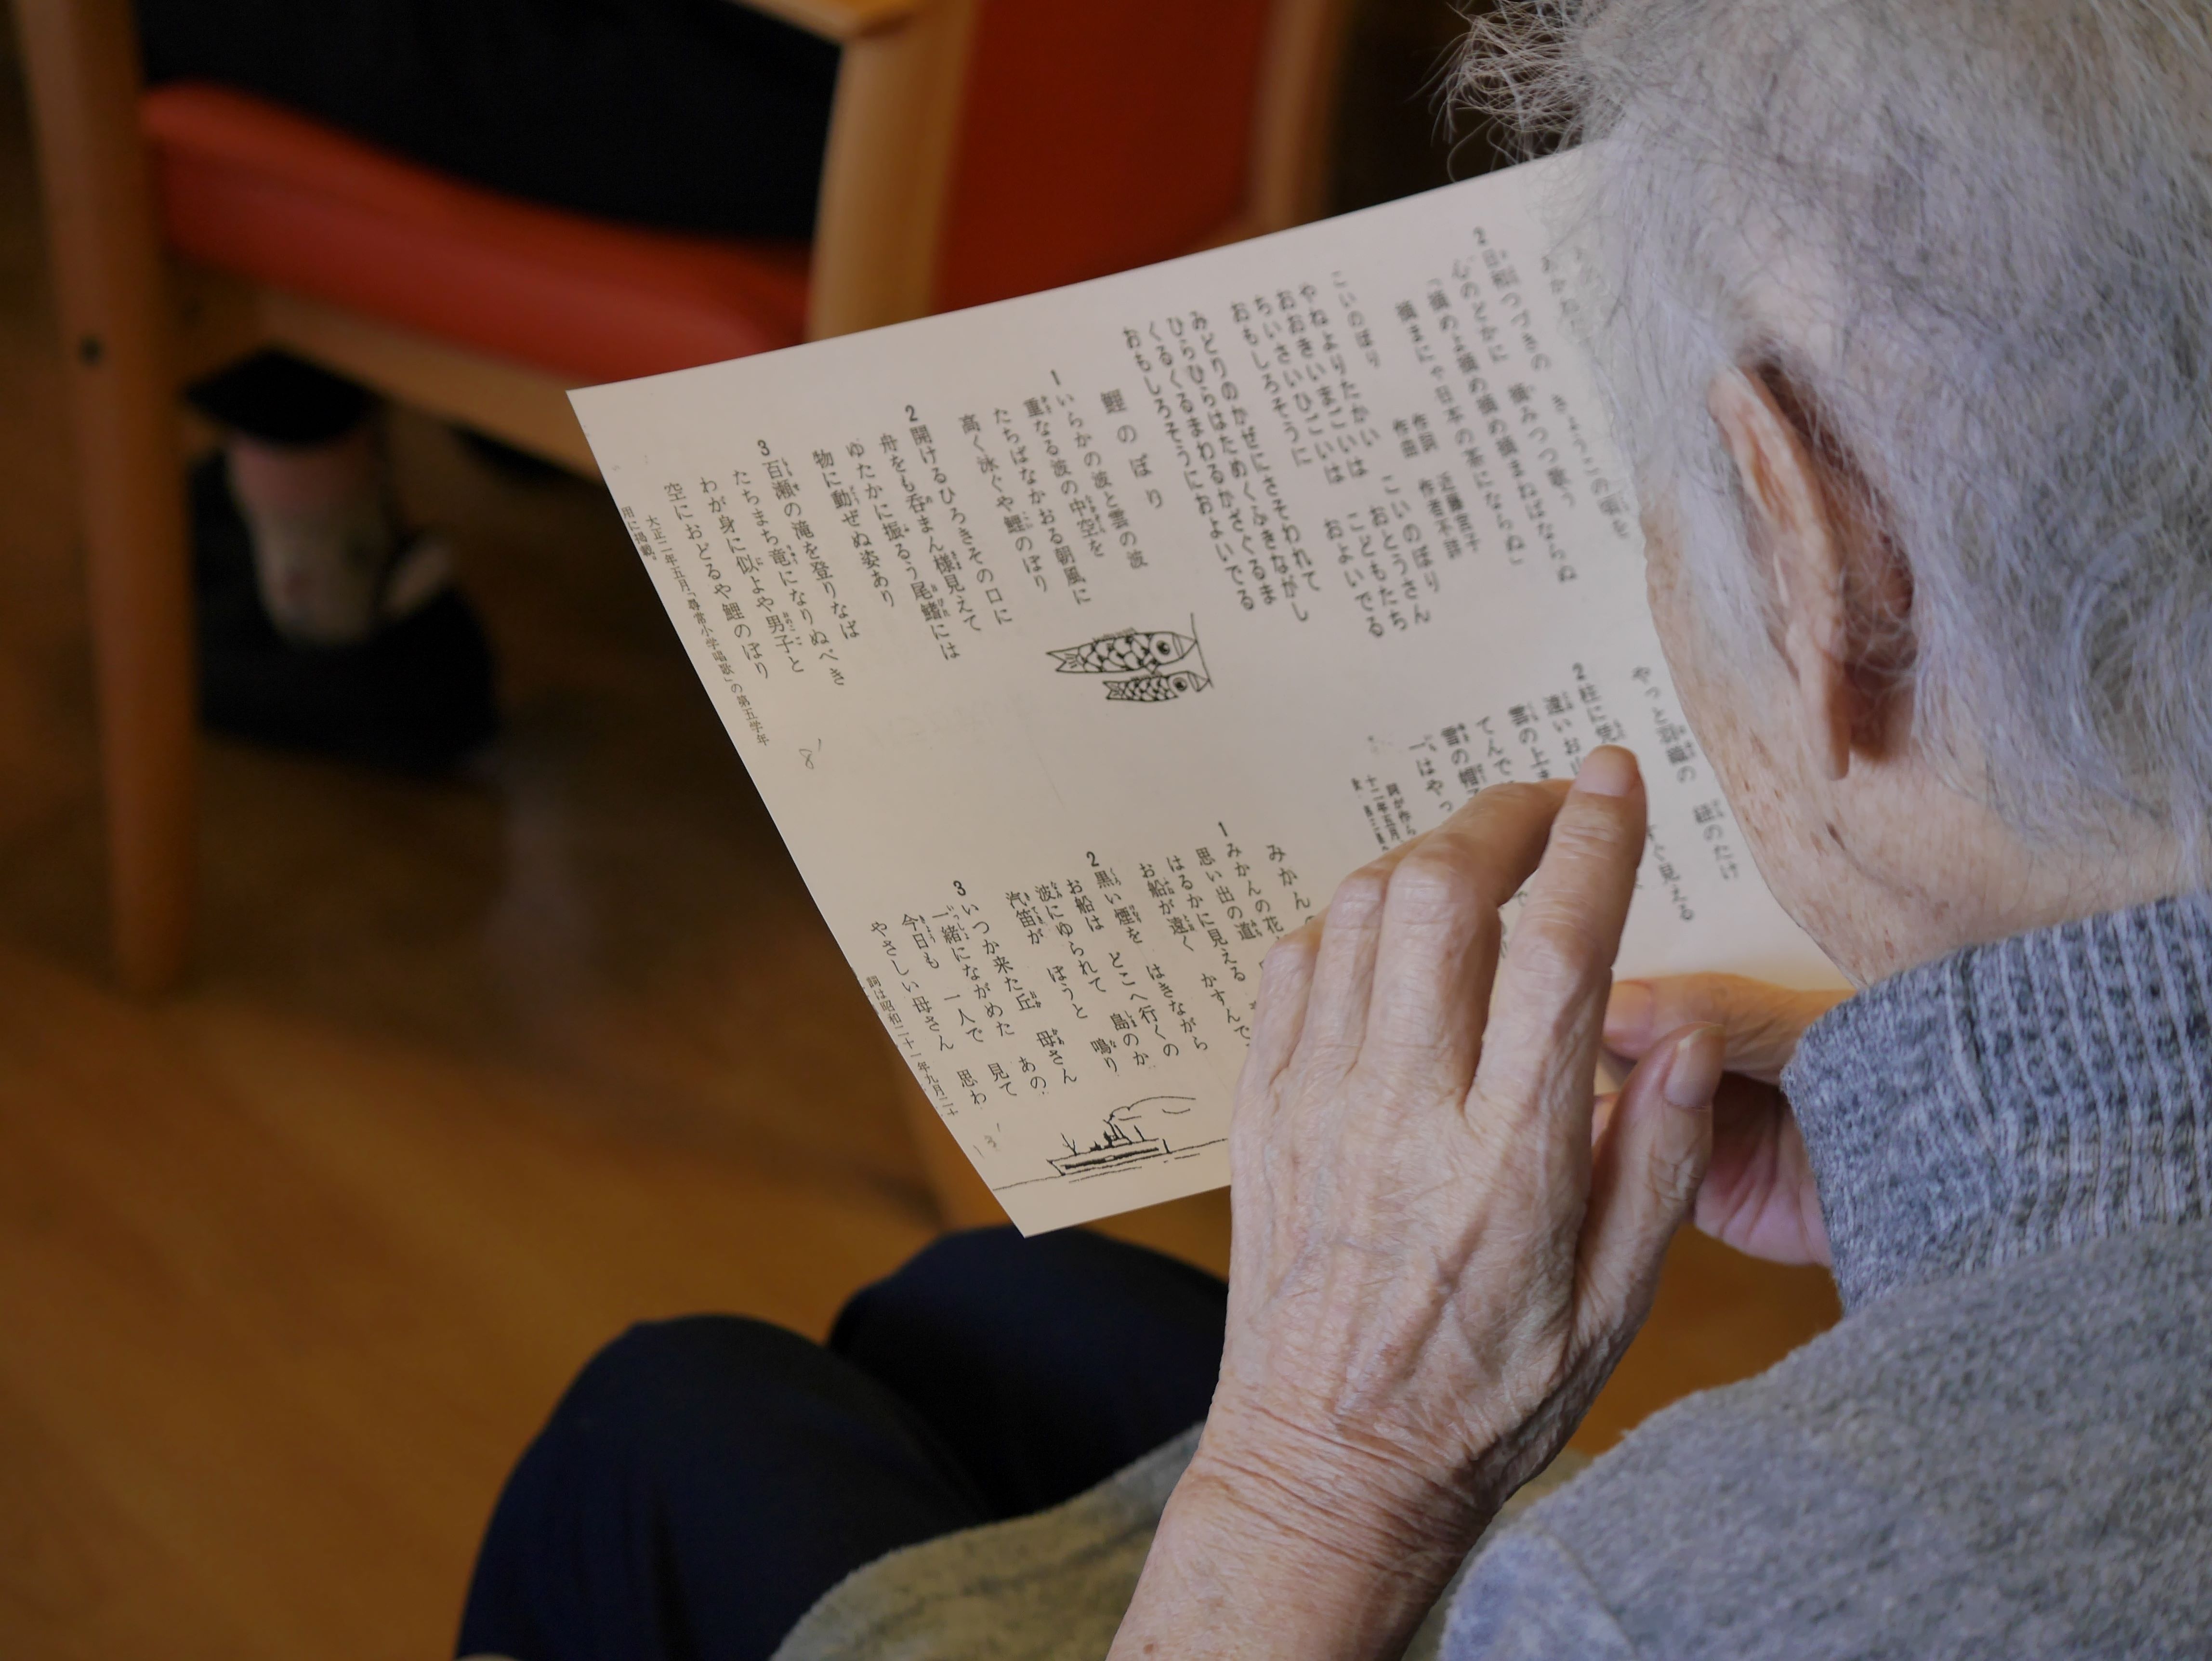 2日和つづきの きょうこの頃を
心のどかに 摘みつつ歌う
「摘めよ摘め摘め摘まねばならぬ
摘まにゃ日本の茶にならぬ」
こいのぼり
作詞 近藤宮子
作曲 作者不詳
やねよりたかい こいのぼり
おおきいまごいは おとうさん
ちいさいひごいは こどもたち
おもしろそうに およいでる
みどりのかぜにさそわれて
ひらひらはためくふきながし
くるくるまわるかざぐるま
おもしろそうにおよいでる
鯉のぼり
1いらかの波と雲の波
重なる波の中空を
たちばなかおる朝風に
高く泳ぐや鯉のぼり
2開けるひろきその口に
舟をも呑まん様見えて
ゆたかに振るう尾鰭には
物に動ぜぬ姿あり
3百瀬の滝を登りなば
たちまち竜になりぬべき
わが身に似よや男子と
空におどるや鯉のぼり
大正二年五月「尋常小学唱歌」の第五学年
用に掲載。
やっと
の たけ
く見える
2柱に
遠いお
雲の上
てんで
雲の
一はやっ
詞が作ら
十二年五月
みかん
1みかんの花
思い出の道
はるかに見える
お船が遠く かすんで
2黒い煙を はきながら
お船は どこへ行くの
波にゆられて 島のか
汽笛が ぼうと 鳴り
3いつか来た丘 母さん
一緒にながめた あの
今日も 一人で 見て
やさしい母さん 思わ
詞は昭和二十一年九月二十